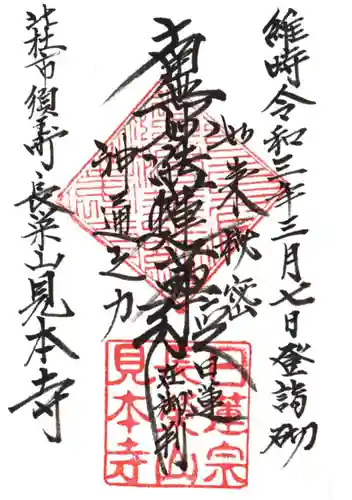 維時令和三年三月七日登詣砌
如来秘密
南無妙法蓮華経
神通之力
日蓮
在御判
北杜市須玉長栄山見本寺
日蓮宗
長栄山
見本寺